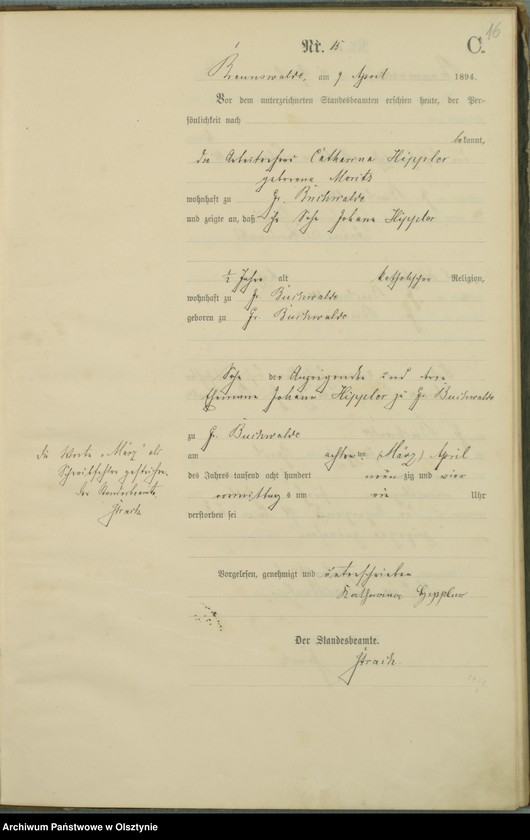 16
Nr. 15 C.
Braunswalde, am 9 April 1894.
Vor dem unterzeichneten Standesbeamten erschien heute, der Per-
sönlichkeit nach
bekannt,
die Arbeiterfrau Catharina Hippler
geborene Moritz
wohnhaft zu Gr. Buchwalde
und zeigte an, daß ihr Sohn Johann Hippler
½ Jahre alt katholischer Religion,
wohnhaft zu Gr. Buchwalde
geboren zu Gr. Buchwalde
Sohn der Anzeigenden und
Ehemanns Johann Hippler zu Gr. Buchwalde
zu Gr. Buchwalde
am achten ten (März) April
des Jahres tausend acht hundert neun zig und vier
vormittag s um Uhr
verstorben sei
die Worte „März" als
Schreibfehler gestrichen.
Der Standesbeamte
Vorgelesen, genehmigt und unterschrieben
Katharina Hippler
Der Standesbeamte.
Archiwum Państwowe w Olsztynie